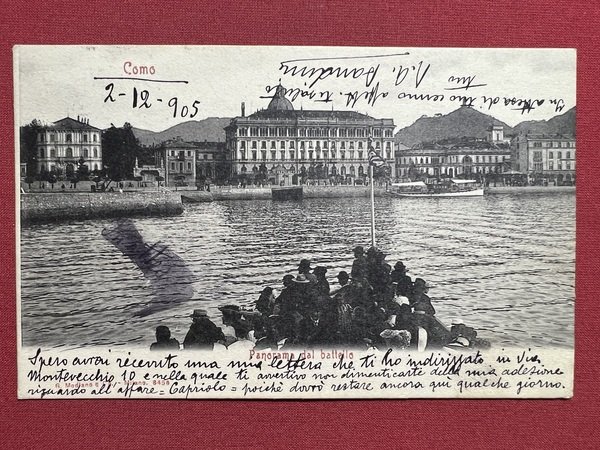 Como
2-12-905
In attesa di
tuo cenno affett. ti saluto
Panorama dal battello
Spero avrai ricevuto una mia lettera che ti ho indirizzato in via
Montevecchio 10 e nella quale ti avvertivo non dimenticarte della mia adesione
riguardo all'affare = Capriolo = poichè dovrò restare ancora qui qualche giorno.
Milano. 8458